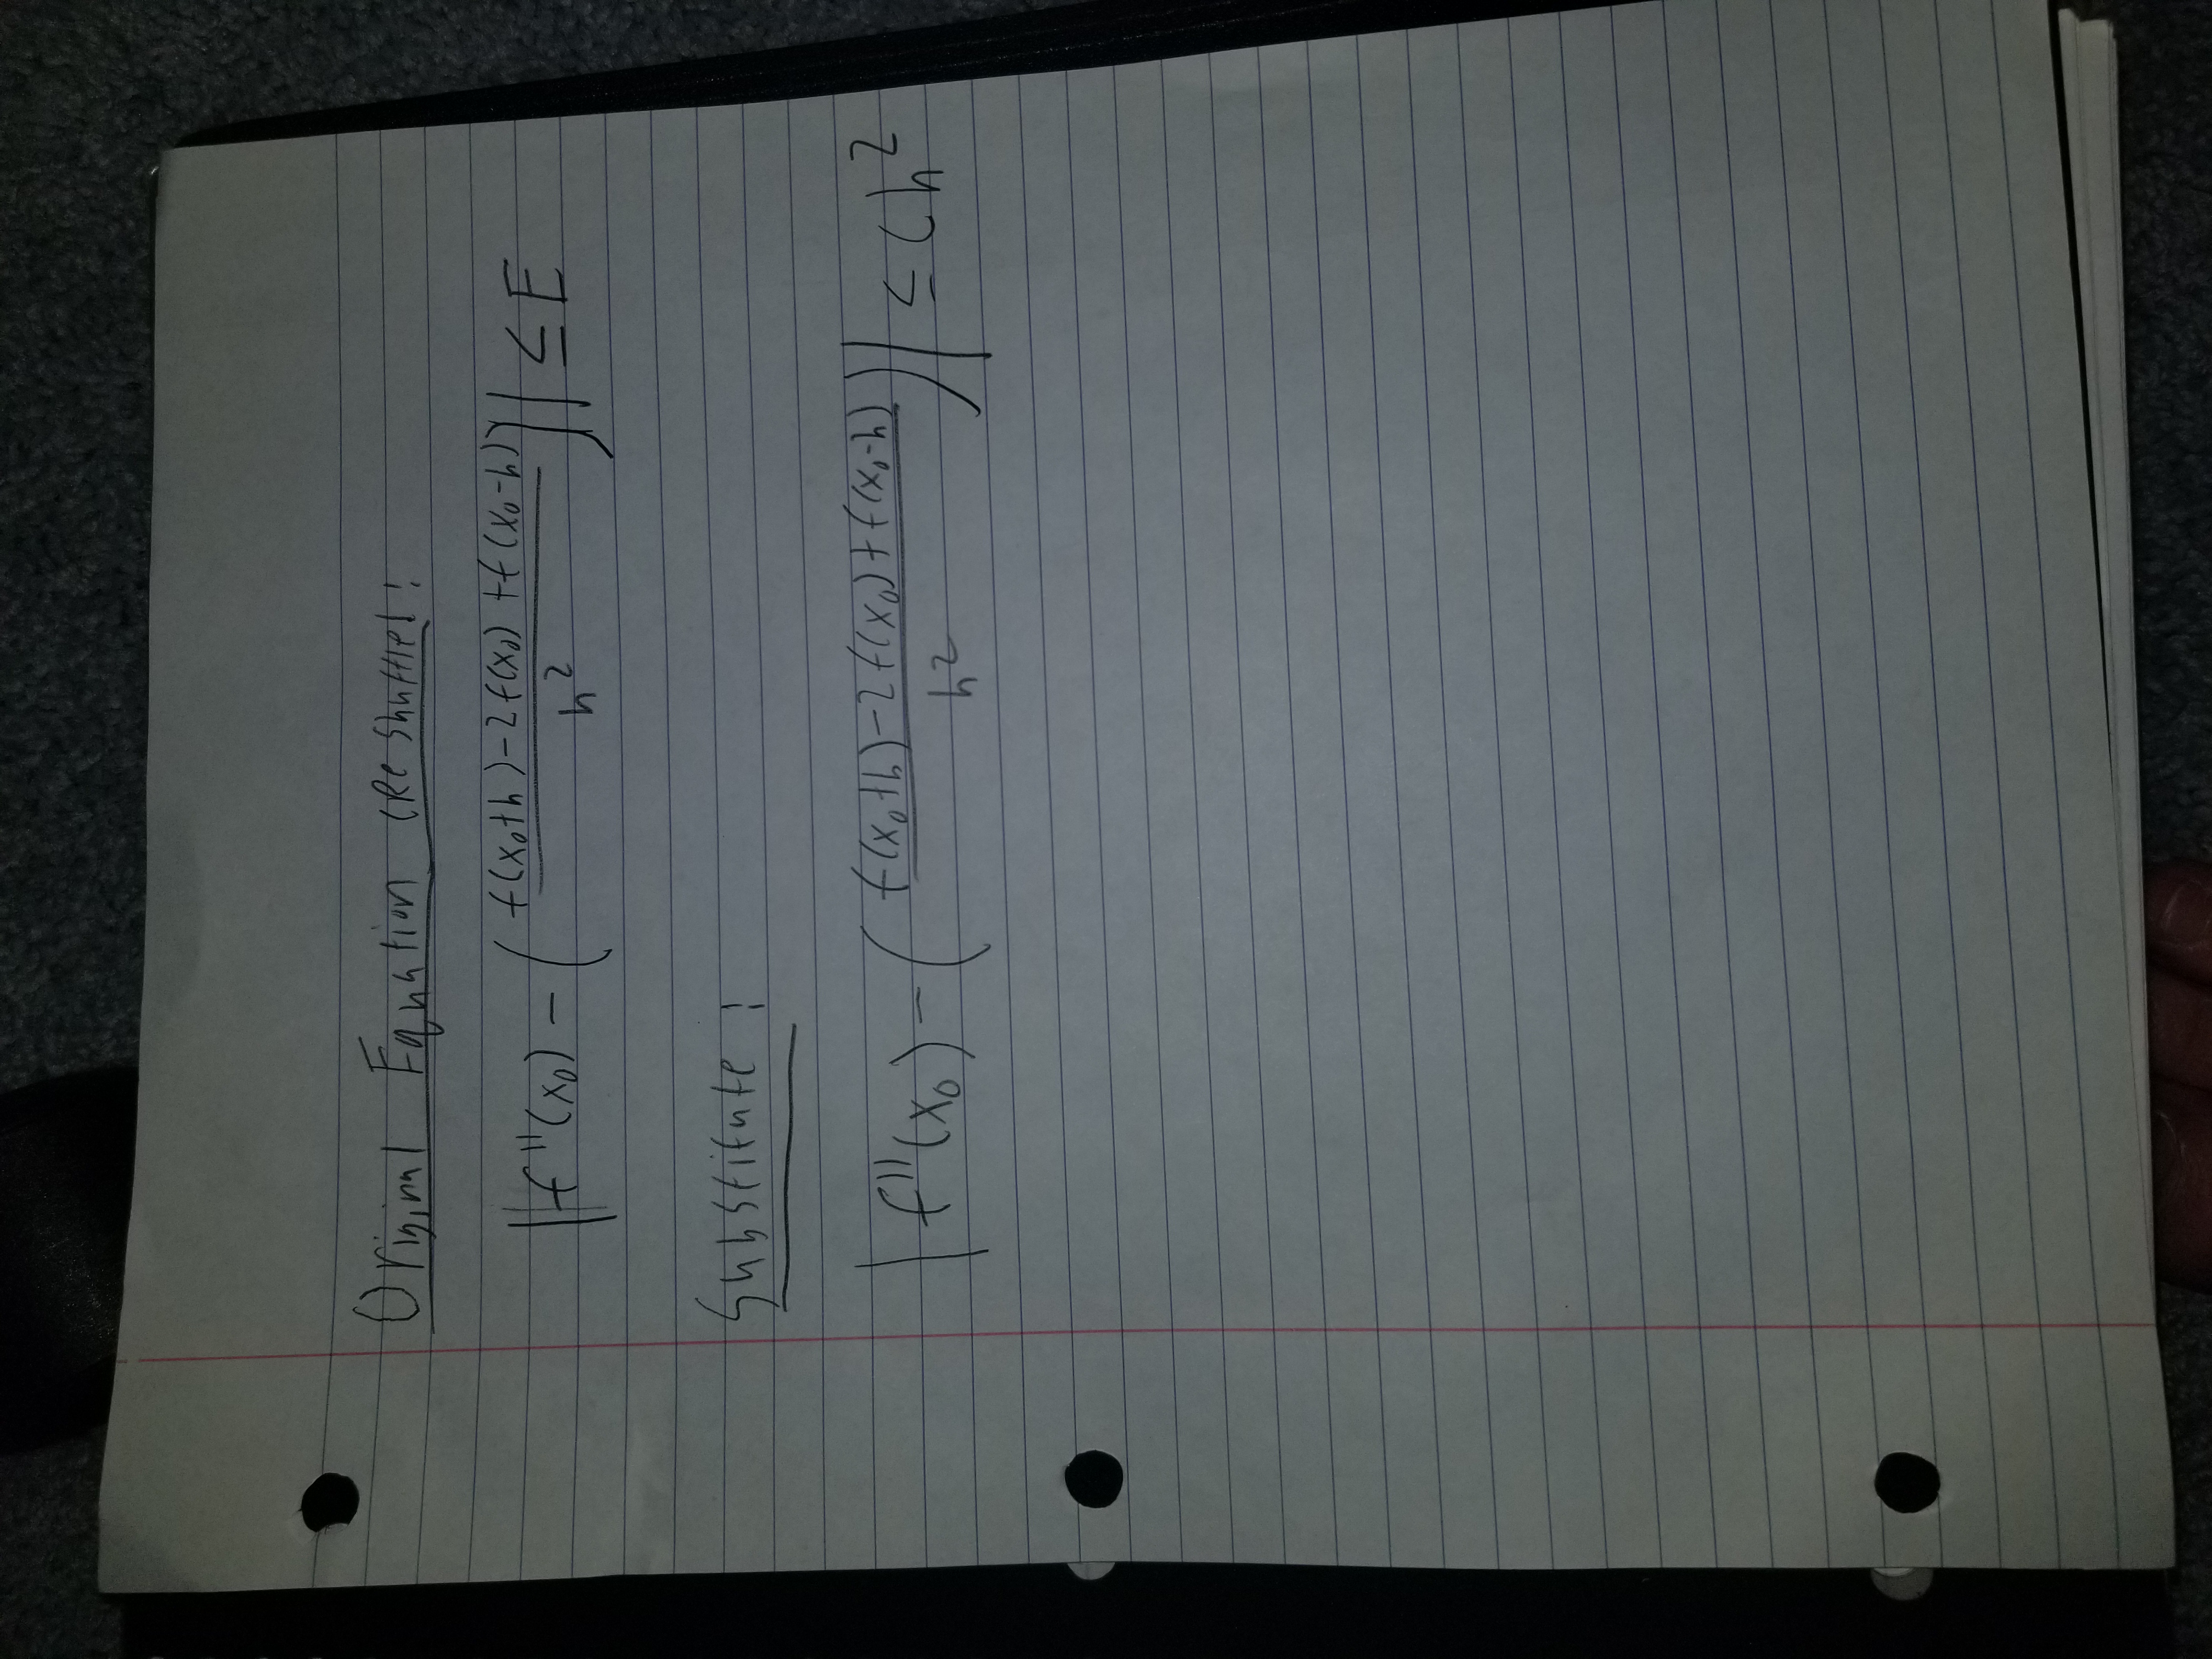 Original Equation (Reshuffle):
|f''(x₀) - (f(x₀+h)-2f(x₀)+f(x₀-h)/h²)| ≤ E
Substitute:
|f''(x₀) - (f(x₀+h)-2f(x₀)+f(x₀-h)/h²)| ≤ Ch²